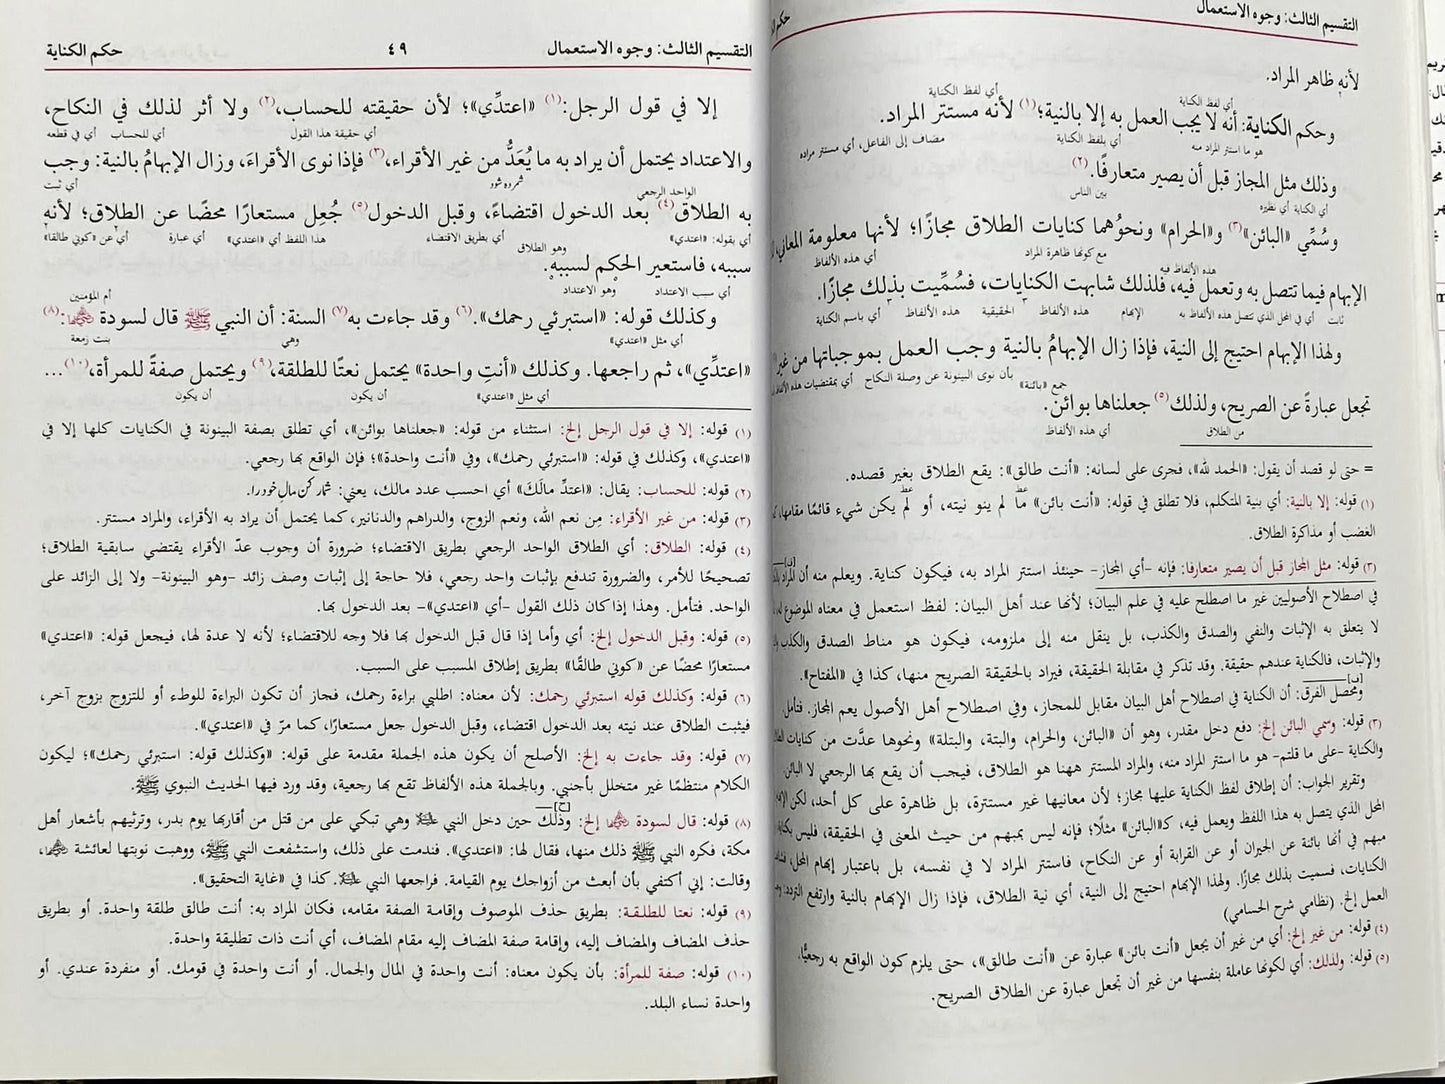 التقسيم الثالث: وجوه الاستعمال
لأنه ظاهر المراد.
أي لفظ الكناية أي لفظ الكناية
وحكم الكناية: أنه لا يجب العمل به إلا بالنية؛(١) لأنه مستتر المراد.
هو ما استتر المراد منه أي بلفظ الكناية مضاف إلى الفاعل، أي مستتر مراده
وذلك مثل المجاز قبل أن يصير متعارفًا.(٢)
أي الكناية أي نظيره بين الناس
وسُمِّي «البائن»(٣) و«الحرام» ونحوُهما كنايات الطلاق مجازًا؛ لأنها معلومة المعاني،
مع كونها ظاهرة المراد أي هذه الألفاظ
هذه الألفاظ فيه
الإبهام فيما تتصل به وتعمل فيه، فلذلك شابهت الكنايات، فسُمِّيت بذلك مجازًا.
ثابت أي في المحل الذي تتصل هذه الألفاظ به الإبهام هذه الألفاظ الحقيقية هذه الألفاظ أي باسم الكناية
ولهذا الإبهام احتيج إلى النية، فإذا زال الإبهامُ بالنية وجب العمل بموجباتها من غير
جمع «بائنة» بأن نوى البينونة عن وصلة النكاح أي بمقتضيات هذه
تجعل عبارةً عن الصريح، ولذلك(٥) جعلناها بوائن.
من الطلاق أي هذه الألفاظ
= حتى لو قصد أن يقول: «الحمد لله»، فجرى على لسانه: «أنت طالق»: يقع الطلاق بغير قصده.
(١) قوله: إلا بالنية: أي بنية المتكلم، فلا تطلق في قوله: «أنت بائن» ما لم ينو نيته، أو لم يكن شيء قائمًا مقامها،
الغضب أو مذاكرة الطلاق.
(٢) قوله: مثل المجاز قبل أن يصير متعارفا: فإنه -أي المجاز- حينئذ استتر المراد به، فيكون كناية. ويعلم منه أن المراد
في اصطلاح الأصوليين غير ما اصطلح عليه في علم البيان؛ لأنها عند أهل البيان: لفظ استعمل في معناه الموضوع له،
لا يتعلق به الإثبات والنفي والصدق والكذب، بل ينقل منه إلى ملزومه، فيكون هو مناط الصدق والكذب
والإثبات، فالكناية عندهم حقيقة. وقد تذكر في مقابلة الحقيقة، فيراد بالحقيقة الصريح منها، كذا في «المفتاح».
ومحصل الفرق: أن الكناية في اصطلاح أهل البيان مقابل للمجاز، وفي اصطلاح أهل الأصول يعم المجاز. فتأمل.
(٣) قوله: وسمي البائن إلخ: دفع دخل مقدر، وهو أن «البائن، والحرام، والبتة، والبتلة» ونحوها عدَّت من كنايات
والكناية -على ما قلتم- هو ما استتر المراد منه، والمراد المستتر ههنا هو الطلاق، فيجب أن يقع بها الرجعي لا البائن.
وتقرير الجواب: أن إطلاق لفظ الكناية عليها مجاز؛ لأن معانيها غير مستترة، بل ظاهرة على كل أحد، لكن
المحل الذي يتصل به هذا اللفظ ويعمل فيه، كـ«البائن» مثلًا؛ فإنه ليس بمبهم من حيث المعنى في الحقيقة، فليس
مبهم في أنها بائنة عن الجيران أو عن القرابة أو عن النكاح، فاستتر المراد لا في نفسه، بل باعتبار إبهام المحل،
الكنايات، فسميت بذلك مجازًا. ولهذا الإبهام احتيج إلى النية، أي نية الطلاق، فإذا زال الإبهام بالنية وارتفع التردد:
العمل إلخ. (نظامي شرح الحسامي)
(٤) قوله: من غير إلخ: أي من غير أن يجعل «أنت بائن» عبارة عن «أنت طالق»، حتى يلزم كون الواقع به رجعيًّا.
(٥) قوله: ولذلك: أي لكونها عاملة بنفسها من غير أن تجعل عبارة عن الطلاق الصريح.
التقسيم الثالث: وجوه الاستعمال ٤٩ حكم الكناية
إلا في قول الرجل:(١) «اعتدِّي»؛ لأن حقيقته للحساب،(٢) ولا أثر لذلك في النكاح،
أي حقيقة هذا القول أي للحساب أي في قطعه
والاعتداد يحتمل أن يراد به ما يُعَدُّ من غير الأقراء،(٣) فإذا نوى الأقراءَ، وزال الإبهامُ بالنية: وجب
شمرده شود أي ثبت
الواحد الرجعي
به الطلاق(٤) بعد الدخول اقتضاءً، وقبل الدخول(٥) جُعِل مستعارًا محضًا عن الطلاق؛ لأنه
أي بقوله: «اعتدي» أي بطريق الاقتضاء هذا اللفظ أي «اعتدي» أي عبارة أي عن «كوني طالقا»
وهو الطلاق
سببه، فاستعير الحكم لسببه.
أي سبب الاعتداد وهو الاعتداد
أم المؤمنين
وكذلك قوله: «استبرئي رحمك».(٦) وقد جاءت به(٧) السنة: أن النبي ﷺ قال لسودة رضي الله عنها:(٨)
أي مثل «اعتدي» وهي بنت زمعة
«اعتدِّي»، ثم راجعها. وكذلك «أنتِ واحدة» يحتمل نعتًا للطلقة،(٩) ويحتمل صفةً للمرأة،(١٠)...
أي مثل «اعتدي» أن يكون أن يكون
(١) قوله: إلا في قول الرجل إلخ: استثناء من قوله: «جعلناها بوائن»، أي تطلق بصفة البينونة في الكنايات كلها إلا في
«اعتدي»، وكذلك في قوله: «استبرئي رحمك»، وفي «أنت واحدة»؛ فإن الواقع بها رجعي.
(٢) قوله: للحساب: يقال: «اعتدِّ مالَكَ» أي احسب عدد مالك، يعني: شمار كن مال خود را.
(٣) قوله: من غير الأقراء: مِن نعم الله، ونعم الزوج، والدراهم والدنانير، كما يحتمل أن يراد به الأقراء، والمراد مستتر.
(٤) قوله: الطلاق: أي الطلاق الواحد الرجعي بطريق الاقتضاء؛ ضرورة أن وجوب عدّ الأقراء يقتضي سابقية الطلاق؛
تصحيحًا للأمر، والضرورة تندفع بإثبات واحد رجعي، فلا حاجة إلى إثبات وصف زائد -وهو البينونة- ولا إلى الزائد على
الواحد. فتأمل. وهذا إذا كان ذلك القول -أي «اعتدي»- بعد الدخول بها.
(٥) قوله: وقبل الدخول إلخ: أي وأما إذا قال قبل الدخول بها فلا وجه للاقتضاء؛ لأنه لا عدة لها، فيجعل قوله: «اعتدي»
مستعارًا محضًا عن «كوني طالقًا» بطريق إطلاق المسبب على السبب.
(٦) قوله: وكذلك قوله استبرئي رحمك: لأن معناه: اطلبي براءة رحمك، فجاز أن تكون البراءة للوطء أو للتزوج بزوج آخر،
فيثبت الطلاق عند نيته بعد الدخول اقتضاء، وقبل الدخول جعل مستعارًا، كما مرّ في «اعتدي».
(٧) قوله: وقد جاءت به إلخ: الأصلح أن يكون هذه الجملة مقدمة على قوله: «وكذلك قوله: استبرئي رحمك»؛ ليكون
الكلام منتظمًا غير متخلل بأجنبي. وبالجملة هذه الألفاظ تقع بها رجعية، وقد ورد فيها الحديث النبوي ﷺ.
(٨) قوله: قال لسودة رضي الله عنها إلخ: وذلك حين دخل النبي عليه السلام وهي تبكي على من قتل من أقاربها يوم بدر، وترثيهم بأشعار أهل
مكة، فكره النبي ﷺ ذلك منها، فقال لها: «اعتدي». فندمت على ذلك، واستشفعت النبي ﷺ، ووهبت نوبتها لعائشة رضي الله عنها،
وقالت: إني أكتفي بأن أبعث من أزواجك يوم القيامة. فراجعها النبي عليه السلام. كذا في «غاية التحقيق».
(٩) قوله: نعتا للطلقة: بطريق حذف الموصوف وإقامة الصفة مقامه، فكان المراد به: أنت طالق طلقة واحدة. أو بطريق
حذف المضاف والمضاف إليه، وإقامة صفة المضاف إليه مقام المضاف، أي أنت ذات تطليقة واحدة.
(١٠) قوله: صفة للمرأة: بأن يكون معناه: أنت واحدة في المال والجمال. أو أنت واحدة في قومك. أو منفردة عندي. أو
واحدة نساء البلد.